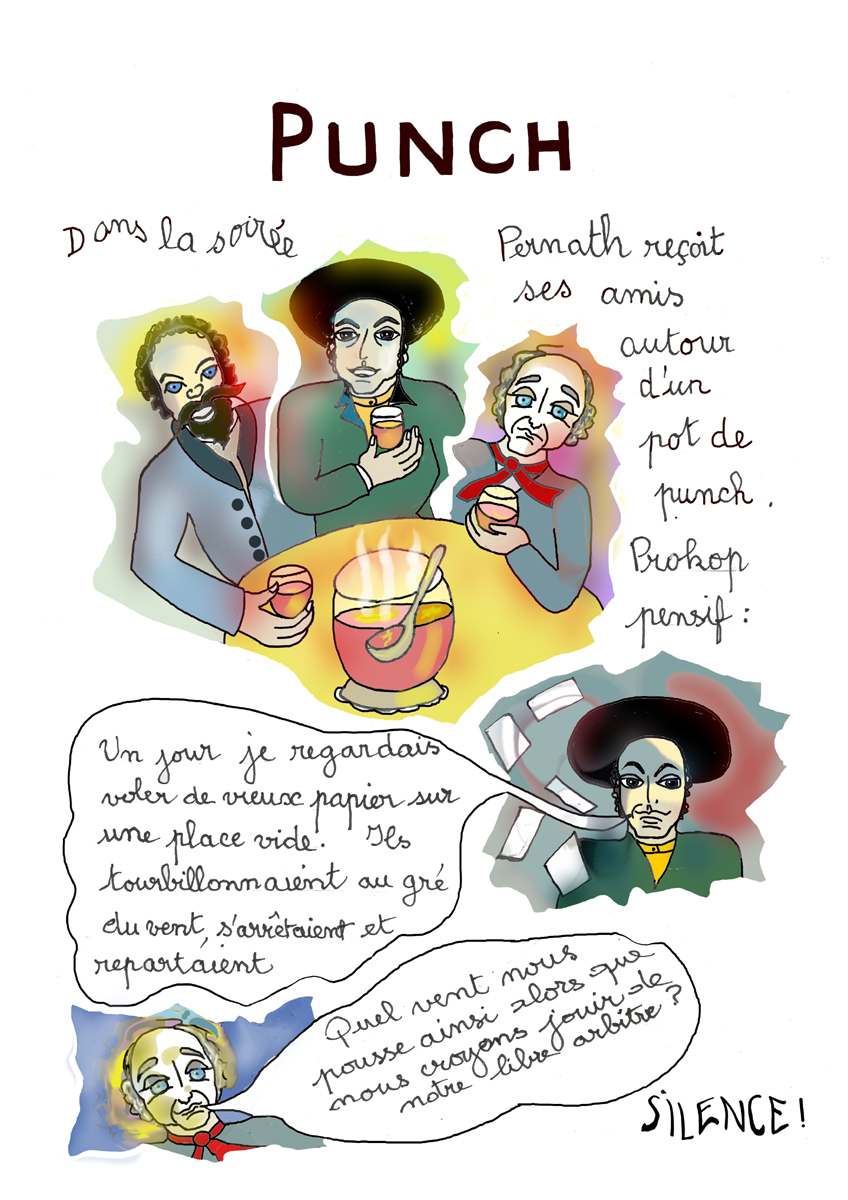 PUNCH
Dans la soirée
Pernath reçoit
ses amis
autour
d'un
pot de
punch.
Prokop
pensif :
Un jour je regardais
voler de vieux papier sur
une place vide. Ils
tourbillonnaient au gré
du vent, s'arrêtaient et
repartaient
Quel vent nous
pousse ainsi alors que
nous croyons jouir de
notre libre arbitre ?
SiLENCE !